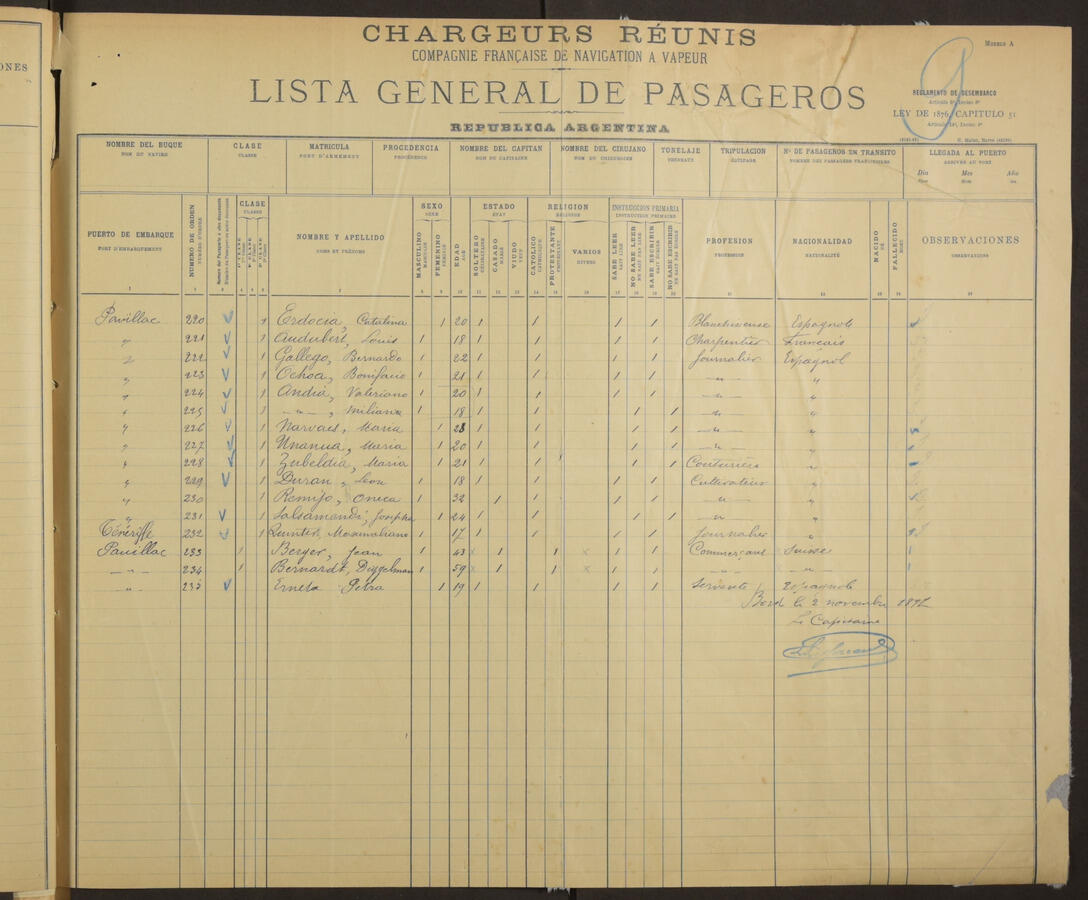 ONES
CHARGEURS RÉUNIS
COMPAGNIE FRANÇAISE DE NAVIGATION A VAPEUR
MODELO A
9
LISTA GENERAL DE PASAGEROS
REGLAMENTO DE DESEMBARCO
LEY DE 1876, CAPITULO 51
REPUBLICA ARGENTINA
NOMBRE DEL BUQUE CLASE MATRICULA PROCEDENCIA NOMBRE DEL CAPITAN NOMBRE DEL CIRUJANO TONELAJE TRIPULACION Nº DE PASAGEROS EM TRANSITO LLEGADA AL PUERTO
NOM DU NAVIRE CLASSE PORT D'ARMEMENT PROCÉDENCE NOM DU CAPITAINE NOM DU CHIRURGIEN TONNEAUX EQUIPAGE ARRIVÉE AU PORT
Dia Mes Año
PUERTO DE EMBARQUE
PORT D'EMBARQUEMENT
NUMERO DE ORDEN
CLASE
CLASSE
NOMBRE Y APELLIDO
NOMS ET PRÉNOMS
SEXO
SEXE
MASCULINO
FEMENINO
EDAD
AGE
ESTADO
ETAT
SOLTERO
CASADO
VIUDO
RELIGION
RELIGION
CATOLICO
PROTESTANTE
VARIOS
DIVERS
INSTRUCCION PRIMARIA
INSTRUCTION PRIMAIRE
SABE LEER
NO SABE LEER
SABE ESCRIBIR
NO SABE ESCRIBIR
PROFESION
PROFESSION
NACIONALIDAD
NATIONALITÉ
NACIDO
FALLECIDO
OBSERVACIONES
OBSERVATIONS
Pavillac 220 1 Erdocia, Catalina 1 20 1 1 1 1 Espagnole
" 221 1 Audubert, Louis 1 18 1 1 1 1 Charpentier Français
" 222 1 Gallego, Bernardo 1 22 1 1 1 1 Journalier Espagnol
" 223 1 Ochoa, Bonifacio 1 21 1 1 1 1 -"- "
" 224 1 Andia, Valeriano 1 20 1 1 1 1 -"- "
" 225 1 -"-, Miliana 1 18 1 1 1 1 -"- "
" 226 1 Narvaes, Maria 1 28 1 1 1 1 -"- "
" 227 1 Unanua, Maria 1 20 1 1 1 1 -"- "
" 228 1 Zubeldia, Maria 1 21 1 1 1 1 Couturière "
" 229 1 Duran, Leon 1 18 1 1 1 1 Cultivateur "
" 230 1 Remijo, Oneca 1 32 1 1 1 1 -"- "
" 231 1 Salsamendi, Josepha 1 24 1 1 1 1 -"- "
Ténériffe 232 1 Maximiliano 1 17 1 1 1 1 Journalier "
Pauillac 233 1 Berger, Jean 1 43 1 1 1 1 Commerçant Suisse
-"- 234 1 Bernardt, Diggelman 1 59 1 1 1 1 -"- -"-
-"- 235 Erneta Petra 1 19 1 1 1 1 Servante Espagnole
Bord le 2 novembre
Le Capitaine